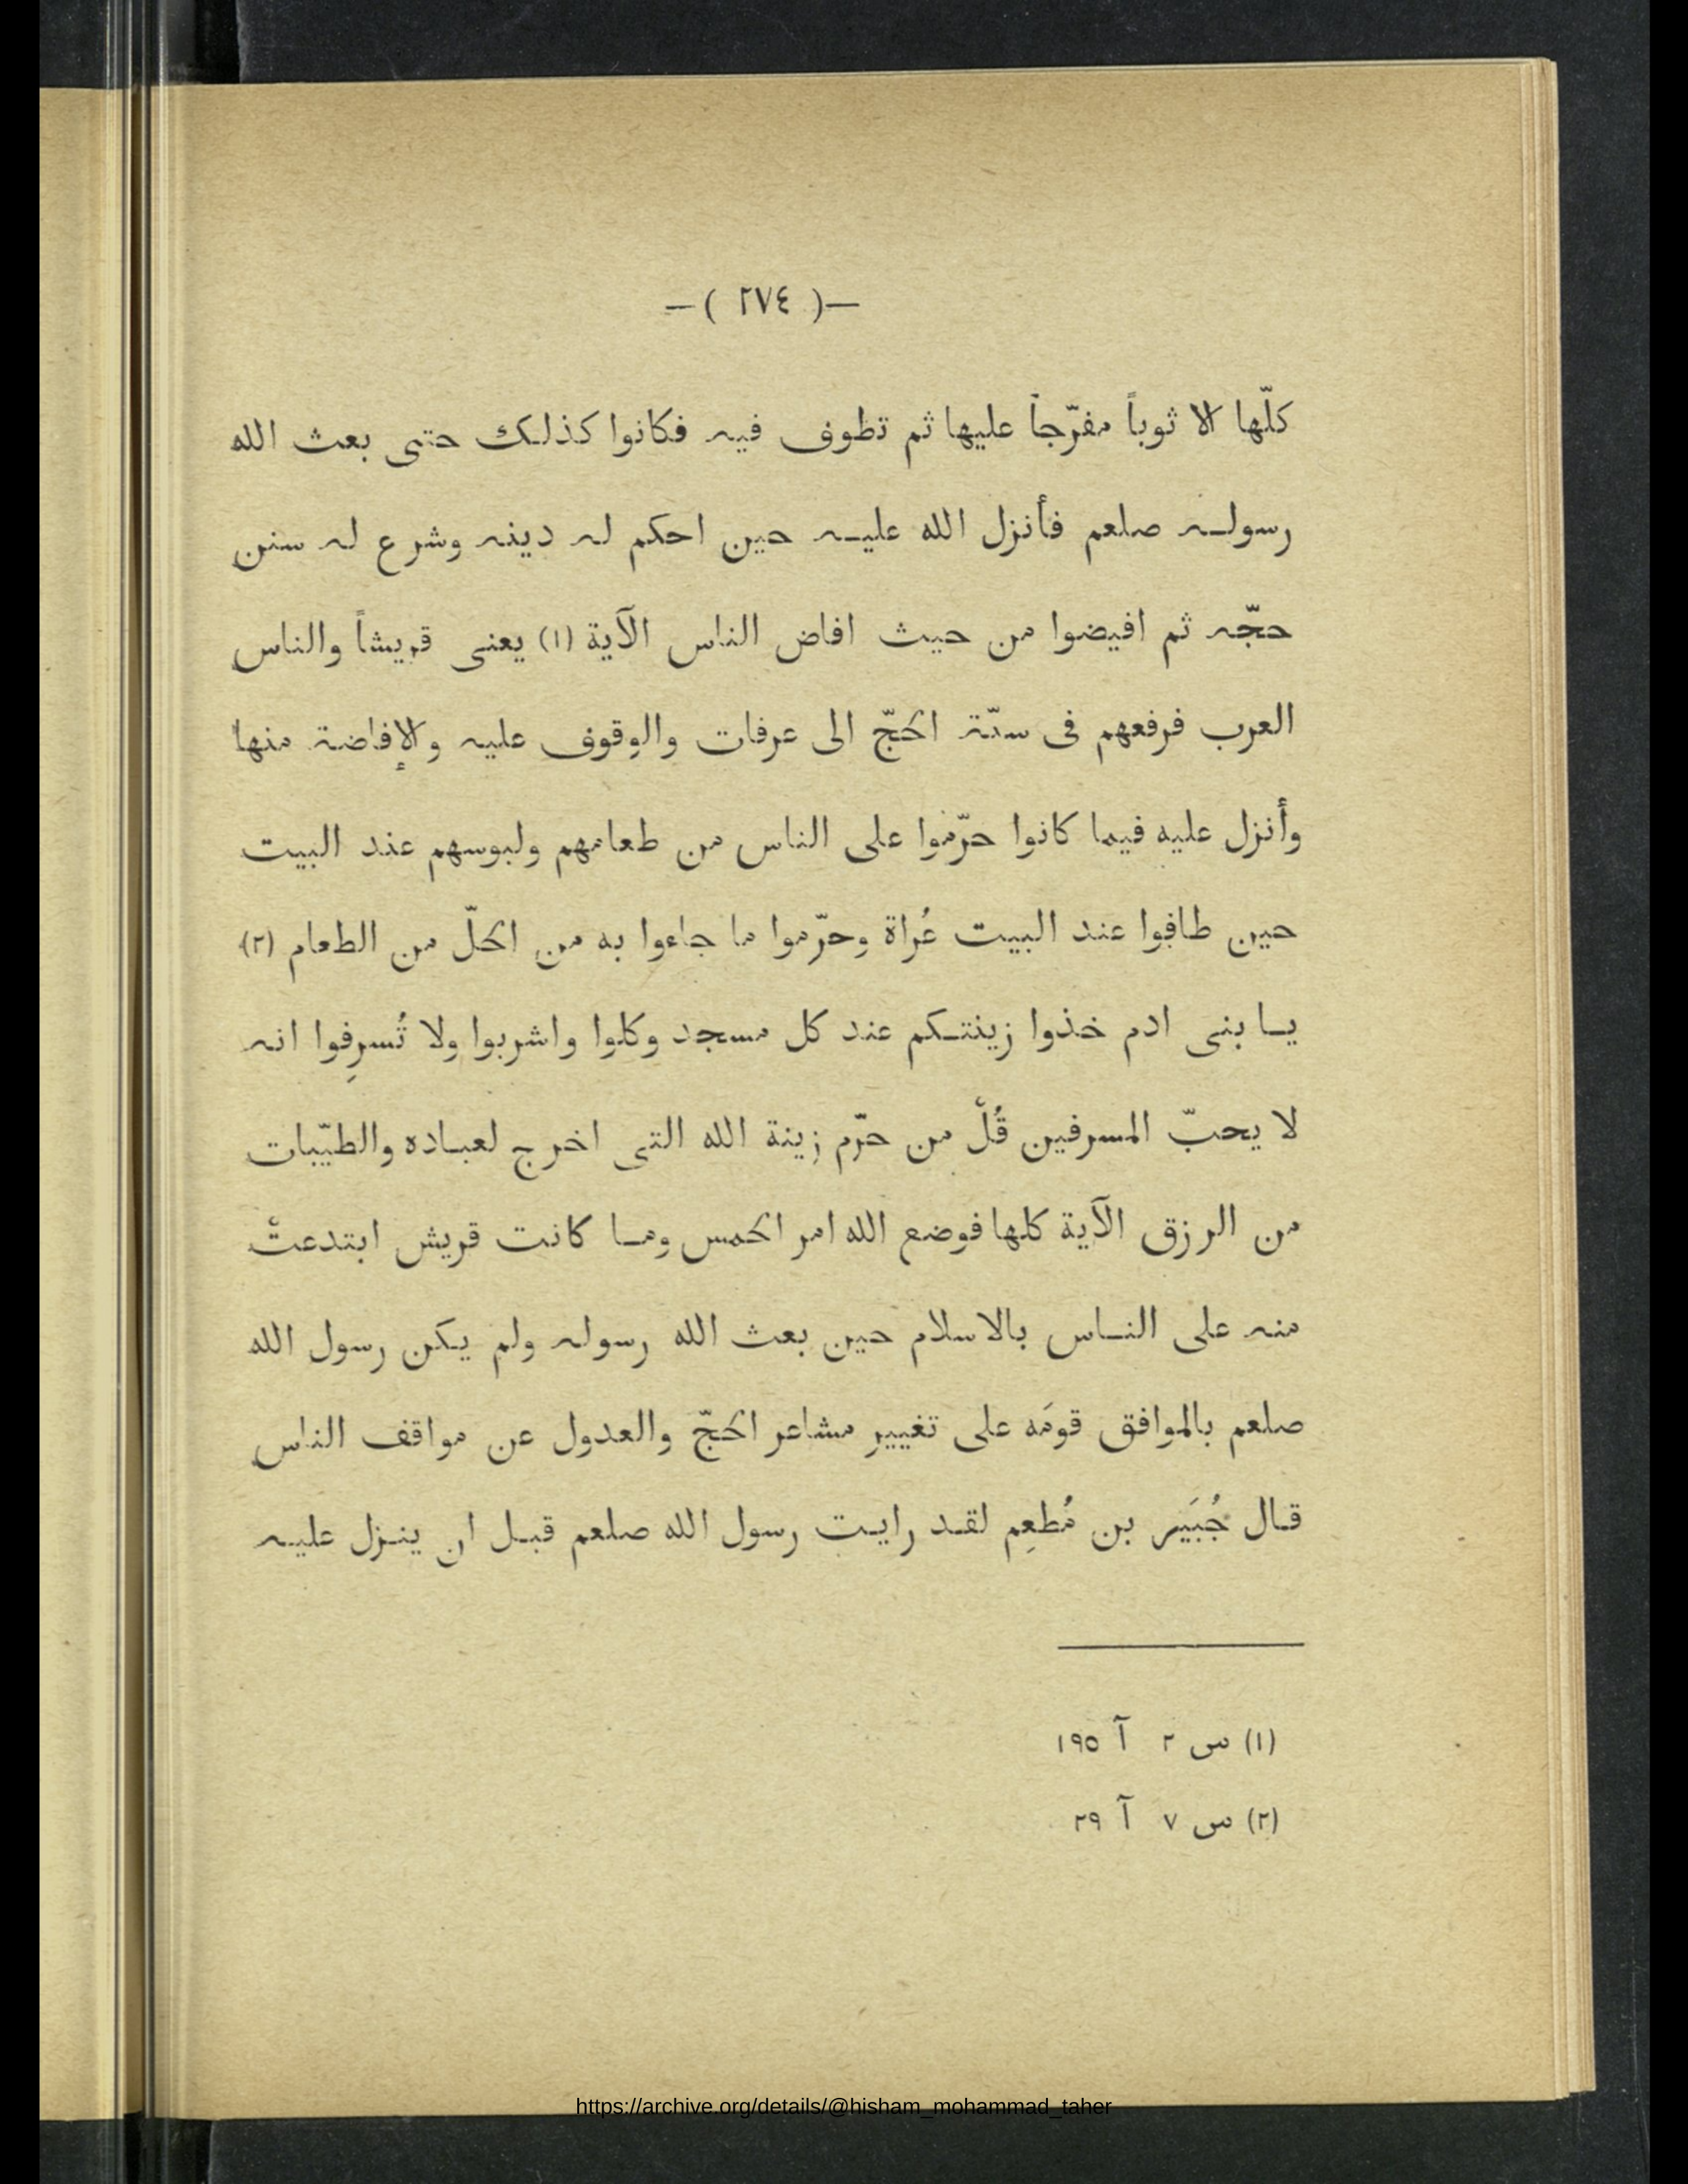 —( ٢٧٤ )—
كلّها الا ثوباً مفرّجاً عليها ثم تطوف فيه فكانوا كذلك حتى بعث الله
رسوله صلعم فأنزل الله عليه حين احكم له دينه وشرع له سنن
حجّه ثم افيضوا من حيث افاض الناس الآية (١) يعنى قريشاً والناس
العرب فرفعهم فى سنّة الحجّ الى عرفات والوقوف عليه والإفاضة منها
وأنزل عليه فيما كانوا حرّموا على الناس من طعامهم ولبوسهم عند البيت
حين طافوا عند البيت عُراة وحرّموا ما جاءوا به من الحلّ من الطعام (٢)
يا بنى ادم خذوا زينتكم عند كل مسجد وكلوا واشربوا ولا تُسرِفوا انه
لا يحبّ المسرفين قُلْ من حرّم زينة الله التى اخرج لعباده والطيّبات
من الرزق الآية كلها فوضع الله امر الحمس وما كانت قريش ابتدعتْ
منه على الناس بالاسلام حين بعث الله رسوله ولم يكن رسول الله
صلعم بالموافق قومَه على تغيير مشاعر الحجّ والعدول عن مواقف الناس
قال جُبَير بن مُطعِم لقد رايت رسول الله صلعم قبل ان ينزل عليه
(١) س ٢ آ ١٩٥
(٢) س ٧ آ ٢٩
https://archive.org/details/@hisham_mohammad_taher